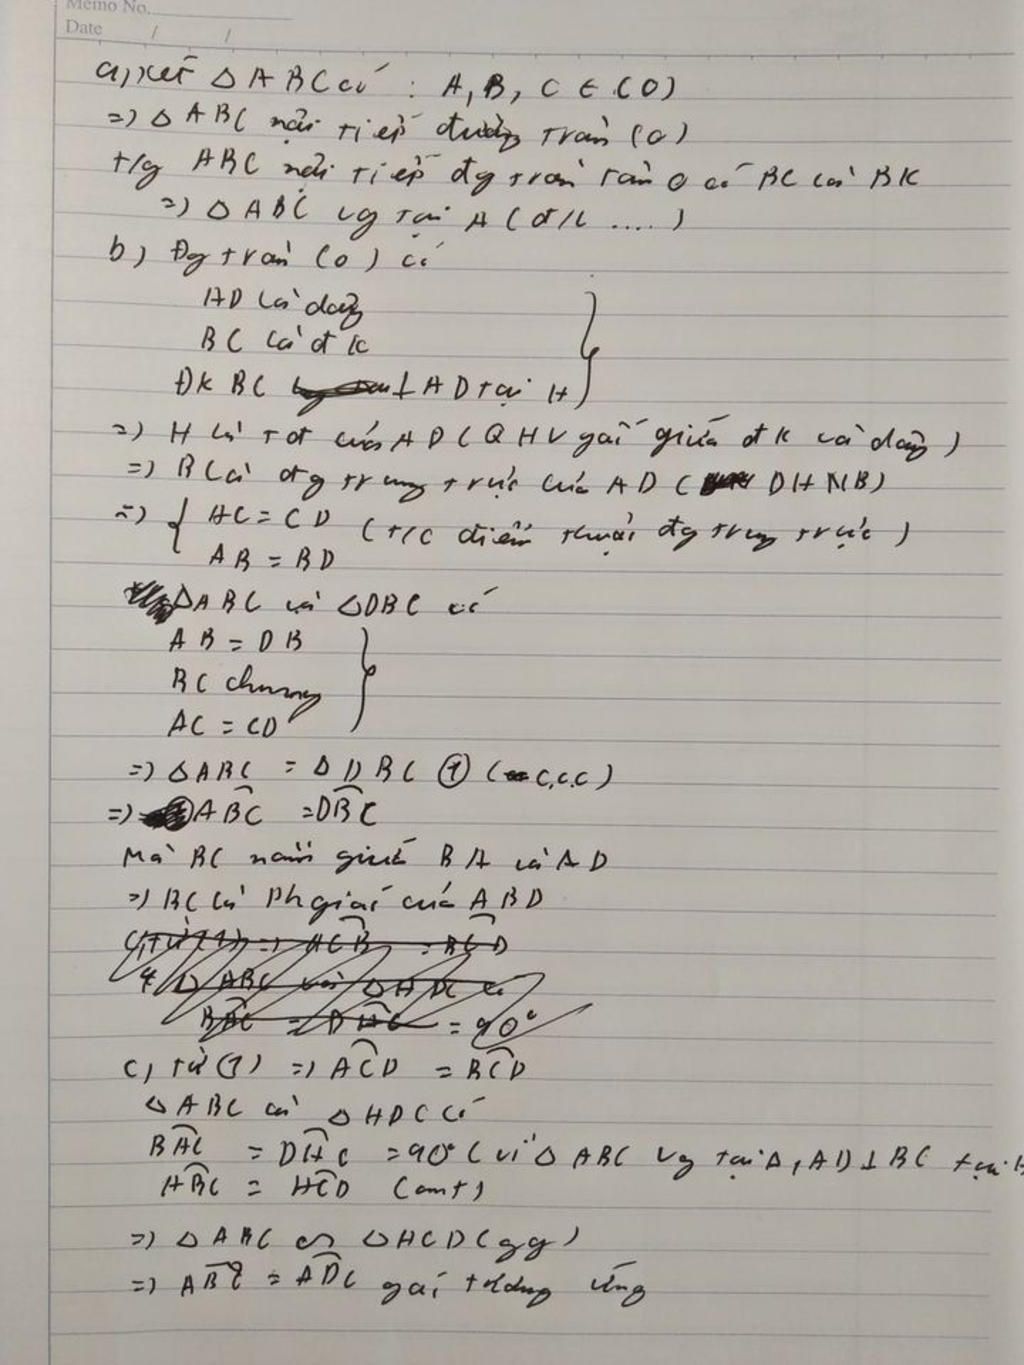 Memo No.
Date / /
a, xét Δ ABC có : A, B, C ∈ (O)
=) Δ ABC nội tiếp đường tròn (O)
t/g ABC nội tiếp đg tròn tâm O có BC là ĐK
=) Δ ABC vg tại A ( đ/l .... )
b) Đg tròn (O) có
AD là dây
BC là đk
ĐK BC ⊥ AD tại H
=) H là t đ của AD ( QH V góc giữa đk và dây )
=) BC là đg trung trực của AD ( DHNB)
=) { AC = CD (T/C điểm thuộc đg trung trực )
AB = BD
ΔABC và ΔDBC có
AB = DB
BC chung
AC = CD
=) ΔABC = Δ DBC ① ( c.c.c)
=) ABC = DBC
Mà BC nằm giữa BA và AD
=) BC là Ph giác của ABD
c, từ (1) =) ACB = BCD
Δ ABC và Δ HDC có
BAC = DHC = 90°
c, từ (1) =) ACD = BCD
Δ ABC và Δ HDC có
BAC = DHC = 90° ( vì Δ ABC vg tại A, AD ⊥ BC tại H
HBC = HCD (cmt)
=) Δ ABC ∽ Δ HCD (gg)
=) ABC = ADC góc tương ứng